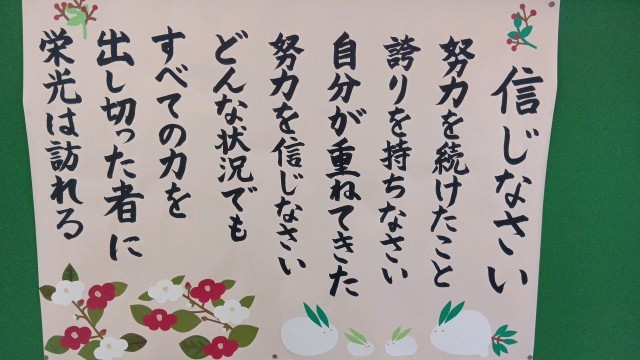 信じなさい
努力を続けたこと
誇りを持ちなさい
自分が重ねてきた
努力を信じなさい
どんな状況でも
すべての力を
出し切った者に
栄光は訪れる